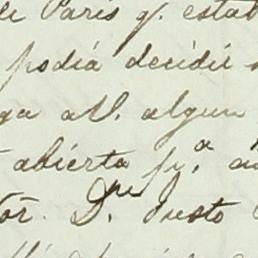 de Paris q. estab
podia decidir
ga all. algun
abierta p.ª
tor. D.ⁿ Justo